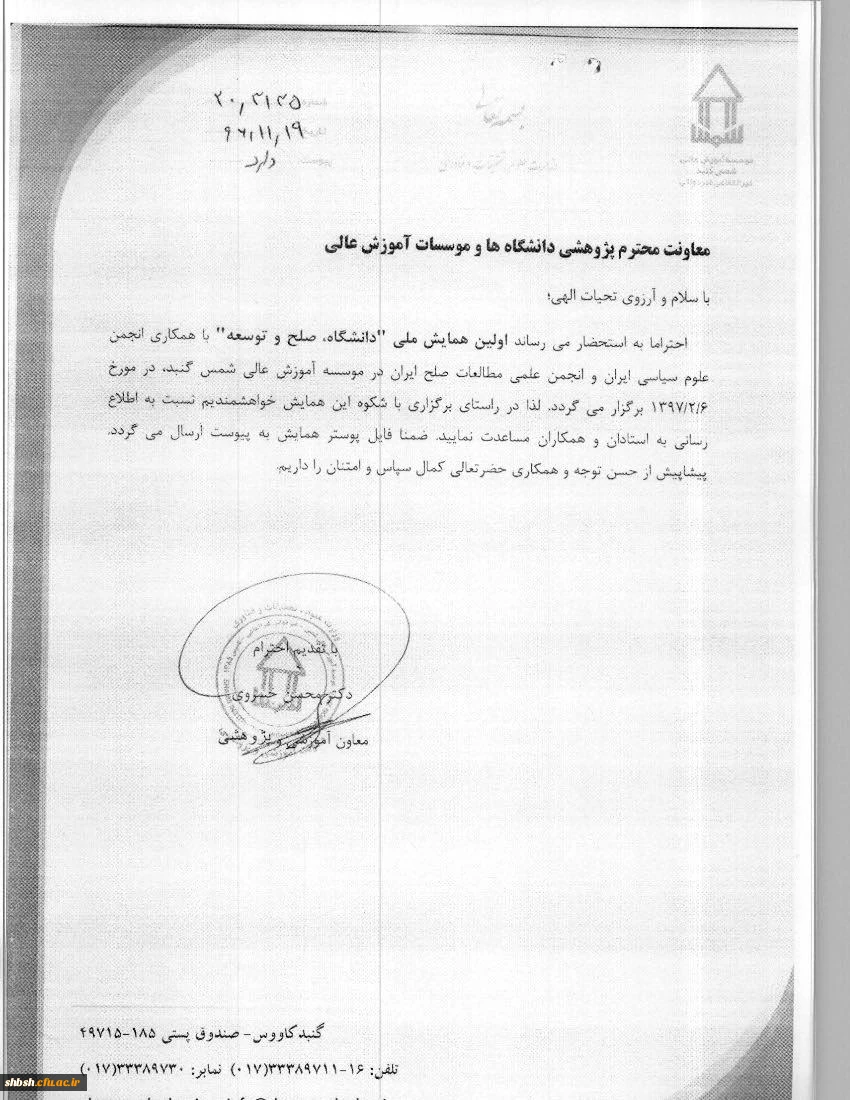 بسمه تعالی
شماره: ۲۰٫۳۱۳۵
تاریخ: ۹۶٫۱۱٫۱۹
پیوست: دارد
شمس
موسسه آموزش عالی
شمس گنبد
غیرانتفاعی-غیردولتی
معاونت محترم پژوهشی دانشگاه ها و موسسات آموزش عالی
با سلام و آرزوی تحیات الهی؛
احتراما به استحضار می رساند اولین همایش ملی "دانشگاه، صلح و توسعه" با همکاری انجمن
علوم سیاسی ایران و انجمن علمی مطالعات صلح ایران در موسسه آموزش عالی شمس گنبد، در مورخ
۱۳۹۷/۲/۶ برگزار می گردد. لذا در راستای برگزاری با شکوه این همایش خواهشمندیم نسبت به اطلاع
رسانی به استادان و همکاران مساعدت نمایید. ضمنا فایل پوستر همایش به پیوست ارسال می گردد.
پیشاپیش از حسن توجه و همکاری حضرتعالی کمال سپاس و امتنان را داریم.
با تقدیم احترام
دکتر محسن خسروی
معاون آموزشی و پژوهشی
گنبدکاووس- صندوق پستی ۱۸۵-۴۹۷۱۵
تلفن: ۱۶-۳۳۳۸۹۷۱۱(۰۱۷) نمابر: ۳۳۳۸۹۷۳۰(۰۱۷)
shbsh.cfu.ac.ir